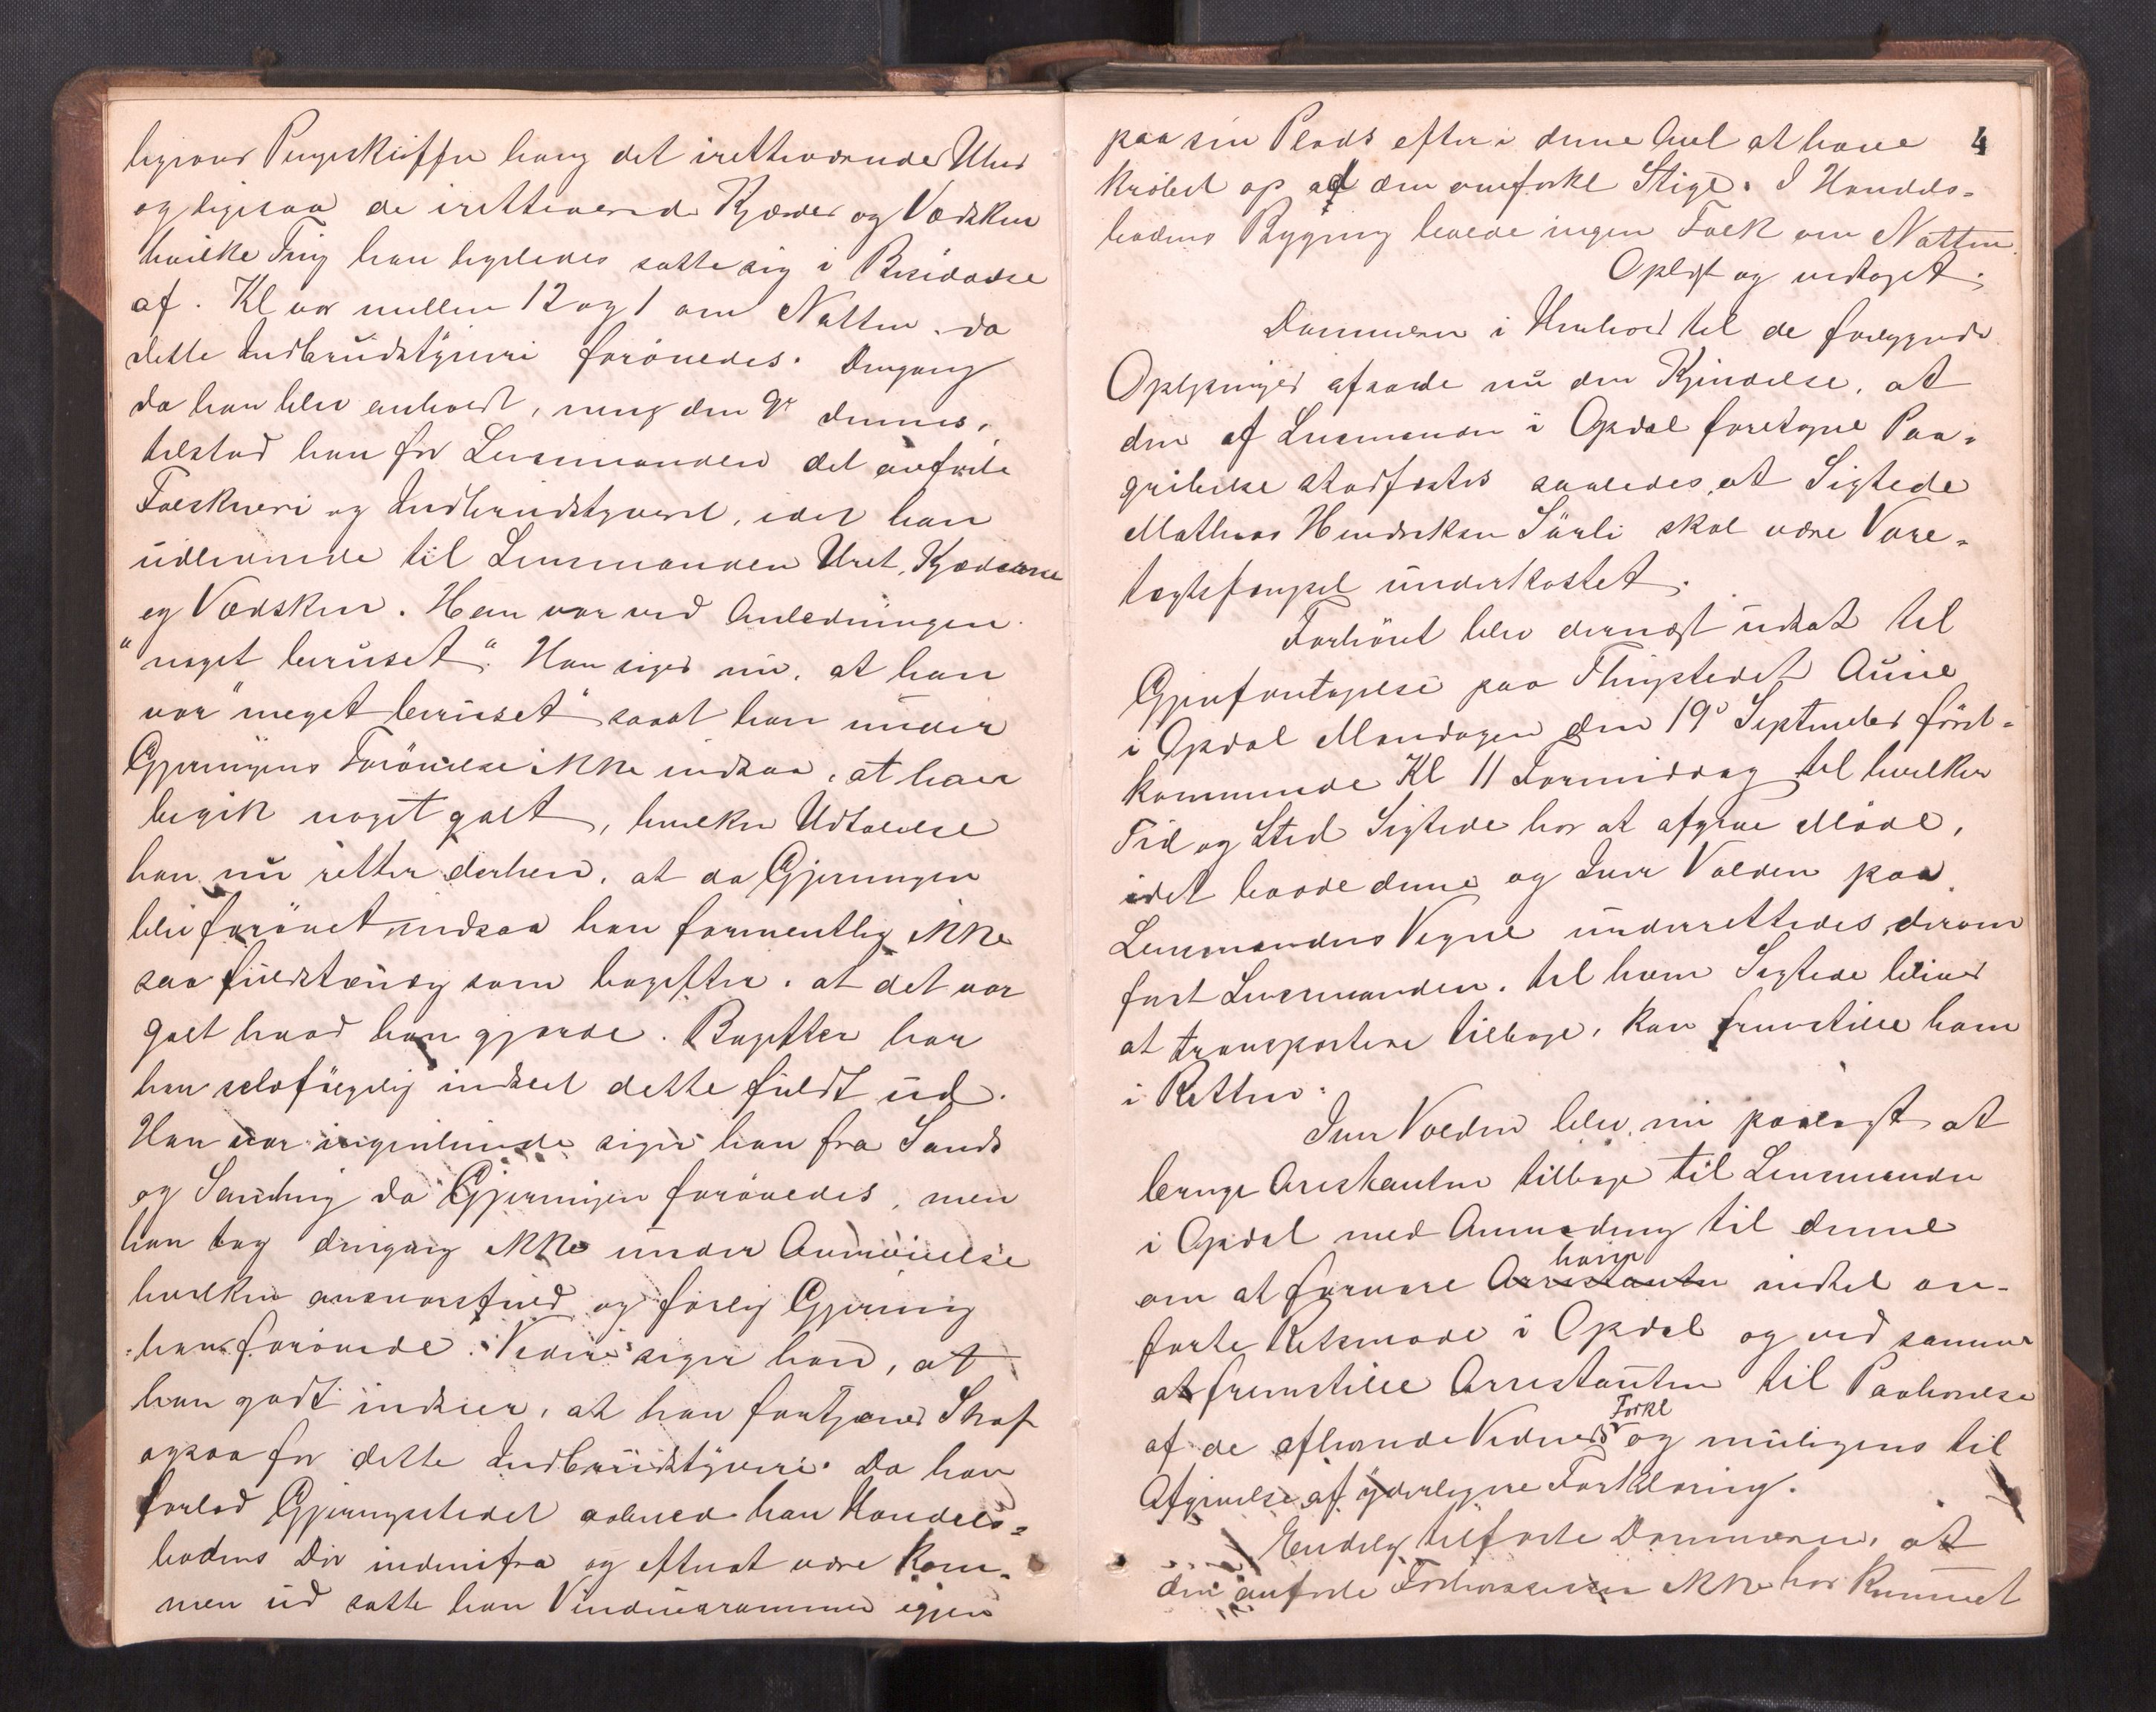 ligeoverfor Pengeskuffen hang det iretteværende Uhr
og ligesaa de iretteværende Kjæder og Vædsken
hvilke Ting han ligeledes satte sig i Besiddelse
af. Kl var mellem 12 og 1 om Natten da
dette Indbrudstyveri forøvedes. Dengang
da han blev anholdt, nemlig den 9de dennes,
tilstod han for Lensmanden det anførte
Falskneri og Indbrudstyveri, idet han
udleverede til Lensmanden Uret, Kjæderne
og Vædsken. Han var ved Anledningen
"noget beruset". Han siger nu, at han
var "meget beruset" saaat han under
Gjerningens Forøvelse ikke indsaa, at han
begik noget galt, hvilken Udtalelse
han nu retter derhen, at da Gjerningen
blev forøvet indsaa han formentlig ikke
saa fuldstændig som bagefter, at det var
galt hvad han gjorde. Bagefter har
han selvfølgelig indseet dette fuldt ud.
Han var ingenlunde siger han fra Sands
og Samling da Gjerningen forøvedes, men
han tog dengang ikke under Overveielse
hvilken ansvarsfuld og farlig Gjerning
han forøvede. Videre siger han, at
han godt indseer, at han fortjener Straf
ogsaa for dette Indbrudstyveri. Da han
forlod Gjerningsstedet aabned han Handels=
bodens Dør indenifra og efterat være kom-
men ud satte han Vinduesrammen igjen
4
paa sin Plads efter i denne Anl at have
krøbet op ad den omforkl Stige. I Handels-
bodens Bygning boede ingen Folk om Natten.
Oplæst og vedtaget.
Dommeren i Henhold til de foreliggende
Oplysninger afsagde nu den Kjendelse, at
den af Lensmanden i Opdal foretagne Paa=
gribelse stadfæstes saaledes, at Sigtede
Mathias Hendriksen Sürli skal være Vare=
tægtsfængsel underkastet.
Forhøret blev dernæst udsat til
Gjenforetagelse paa Thingstedet Aune
i Opdal Mandagen den 19de September først=
kommende Kl 11 Formiddag til hvilken
Tid og Sted Sigtede har at afgive Møde,
idet baade denne og Iver Volden paa
Lensmandens Vegne underrettedes derom
fast Lensmanden, til hvem Sigtede bliver
at transportere tilbage, kan fremstille ham
i Retten.
Iver Volden blev nu paalagt at
bringe Arrestanten tilbage til Lensmanden
i Opdal med Anmodning til denne
om at forvare Arrestanten ham indtil an-
førte Retsmøde i Opdal og ved samme
at fremstille Arrestanten til Paahørelse
af de afhørende Vidners Forkl og muligens til
Afgivelse af yderligere Forklaring.
Endelig tilførte Dommeren, at
den anførte ikke har kunnet